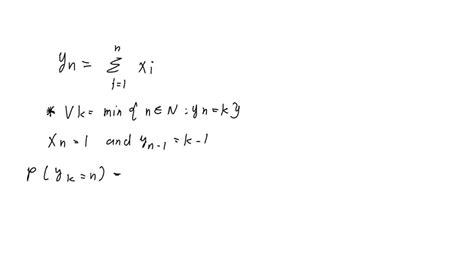 yn = n Σ i=1 xi
* Vk = min { n ∈ N : yn = k }
xn = 1 and yn-1 = k-1
P ( yk = n ) =